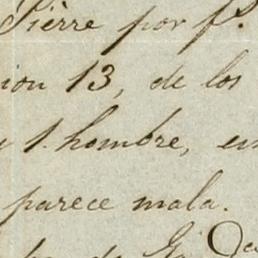 Pièrre por f.
ion 13, de los
1. hombre, en
parece mala.
de